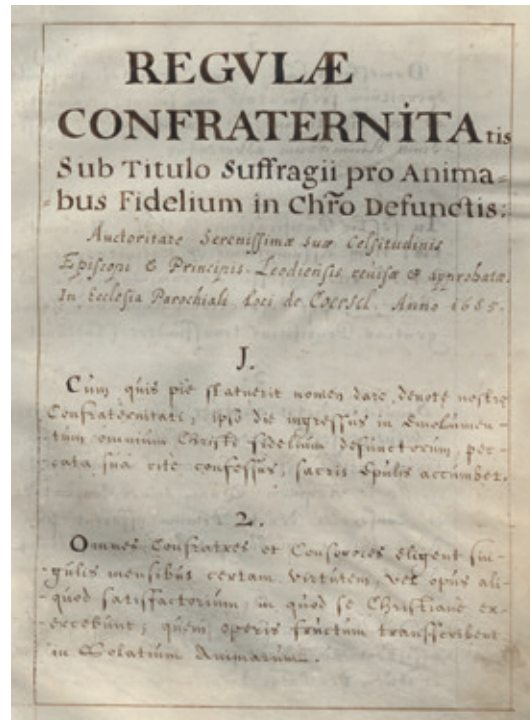 REGVLÆ
CONFRATERNITAtis
Sub Titulo Suffragii pro Anima-
-bus Fidelium in Chr̃o Defunctis:
Auctoritate Serenissimæ suæ Celsitudinis
Episcopi & Principis Leodiensis reuisæ & approbatæ.
In Ecclesia Parochiali Loci de Coersel. Anno 1685.
J.
Cùm quis piè statuerit nomen dare, deuotè nostræ
Confraternitati, ipso die ingressus in Emolumen-
-tum omnium Christi fidelium defunctorum, pec-
-cata sua ritè confessus, sacris Epulis accumbet.
2.
Omnes Confratres et Consorores eligent sin-
-gulis mensibus certam virtutem, vel opus ali-
-quod satisfactorium, in quod se Christianè ex-
-ercebunt; quem operis fructum transscribent
in Solatium Animarum.